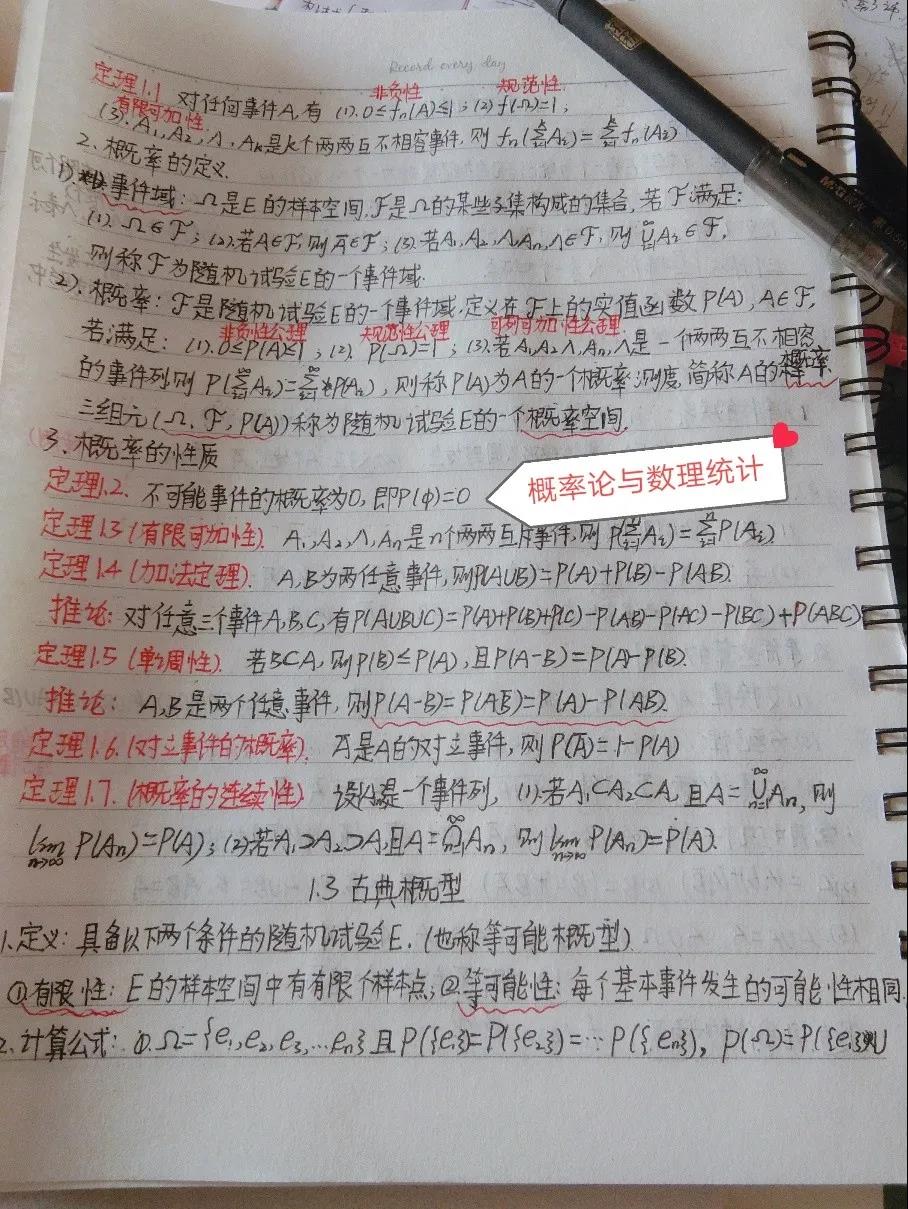 Record every day
非负性 规范性
定理1.1 对任何事件A,有 (1).0≤fn(A)≤1;(2) f(Ω)=1;
有限可加性
(3).A₁,A₂,Λ,Aₖ是k个两两互不相容事件,则 fn(∑ᵢ₌₁ᵏAᵢ)=∑ᵢ₌₁ᵏfn(Aᵢ)
2.概率的定义.
1)事件域:Ω是E的样本空间,ℱ是Ω的某些子集构成的集合,若ℱ满足:
(1).Ω∈ℱ;(2).若A∈ℱ,则A̅∈ℱ;(3).若A₁,A₂,Λ,Aₙ,Λ∈ℱ,则⋃ᵢ₌₁^∞Aᵢ∈ℱ,
则称ℱ为随机试验E的一个事件域.
2).概率:ℱ是随机试验E的一个事件域,定义在ℱ上的实值函数P(A),A∈ℱ,
非负性公理 规范性公理 可列可加性公理
若满足:(1).0≤P(A)≤1;(2).P(Ω)=1;(3).若A₁,A₂,Λ,Aₙ,Λ是一个两两互不相容
的事件列,则P(∑ᵢ₌₁^∞Aᵢ)=∑ᵢ₌₁^∞P(Aᵢ),则称P(A)为A的一个概率测度,简称A的概率.
三组元(Ω,ℱ,P(A))称为随机试验E的一个概率空间.
3.概率的性质
定理1.2.不可能事件的概率为0,即P(φ)=0
概率论与数理统计
定理1.3(有限可加性).A₁,A₂,Λ,Aₙ是n个两两互斥事件,则P(∑ᵢ₌₁ⁿAᵢ)=∑ᵢ₌₁ⁿP(Aᵢ).
定理1.4(加法定理).A,B为两任意事件,则P(A∪B)=P(A)+P(B)-P(AB).
推论:对任意三个事件A,B,C,有P(A∪B∪C)=P(A)+P(B)+P(C)-P(AB)-P(AC)-P(BC)+P(ABC)
定理1.5(单调性).若B⊂A,则P(B)≤P(A),且P(A-B)=P(A)-P(B).
推论:A,B是两个任意事件,则P(A-B)=P(AB̅)=P(A)-P(AB).
定理1.6.(对立事件的概率).A̅是A的对立事件,则P(A̅)=1-P(A)
定理1.7.(概率的连续性) 设{Aₙ}是一个事件列,(1).若A₁⊂A₂⊂Λ,且A=⋃ₙ₌₁^∞Aₙ,则
lim n→∞ P(Aₙ)=P(A);(2)若A₁⊃A₂⊃Λ,且A=⋂ₙ₌₁^∞Aₙ,则lim n→∞ P(Aₙ)=P(A).
1.3 古典概型
1.定义:具备以下两个条件的随机试验E.(也称等可能概型)
①.有限性:E的样本空间中有有限个样本点;②.等可能性:每个基本事件发生的可能性相同.
2.计算公式:①.Ω={e₁,e₂,e₃,…eₙ}且P({e₁})=P({e₂})=…P({eₙ}),P(Ω)=P({e₁}∪
M&G